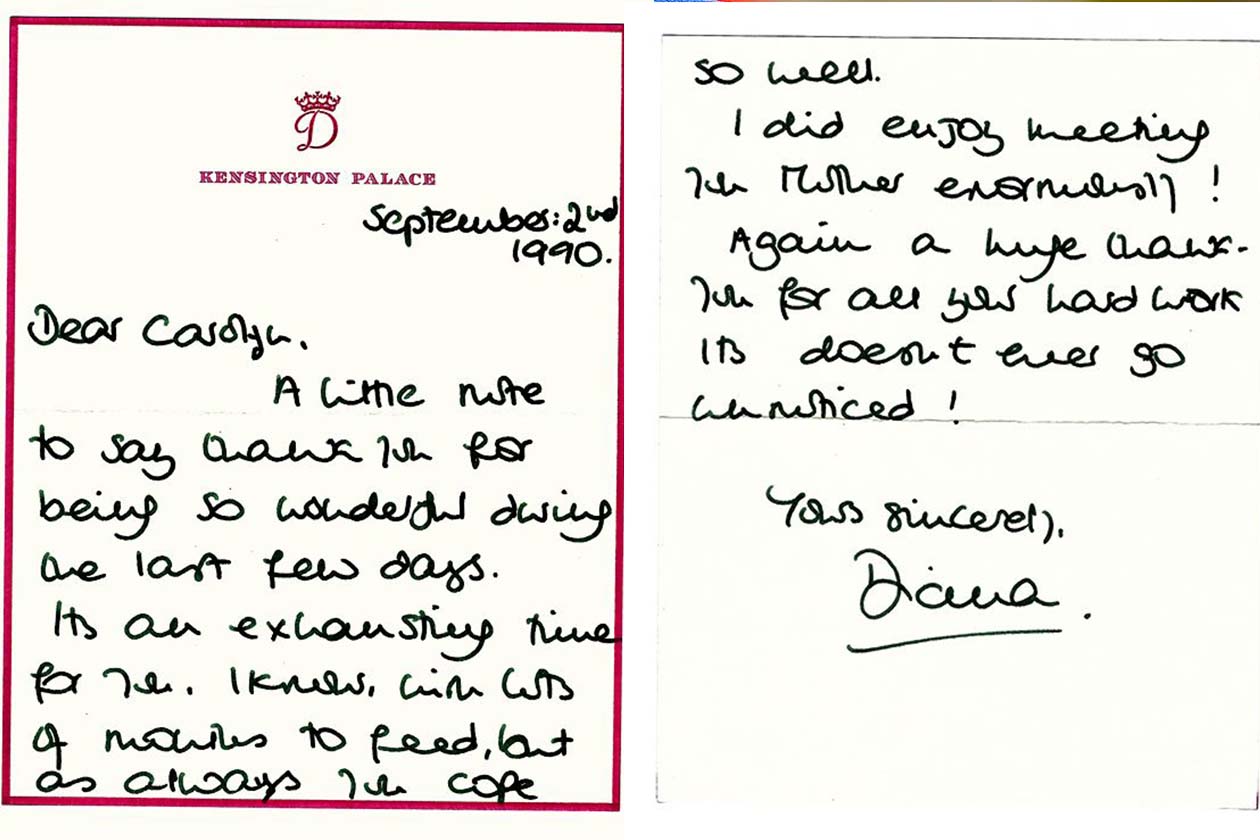 D
KENSINGTON PALACE
September: 2nd
1990.
Dear Carolyn.
A little note
to say thank you for
being so wonderful during
the last few days.
Its an exhausting time
for you, I know, with lots
of mouths to feed, but
as always you cope
so well.
I did enjoy meeting
your Mother enormously!
Again a huge thank-
you for all your hard work
Its doesn't ever go
unnoticed!
Yours sincerely,
Diana.